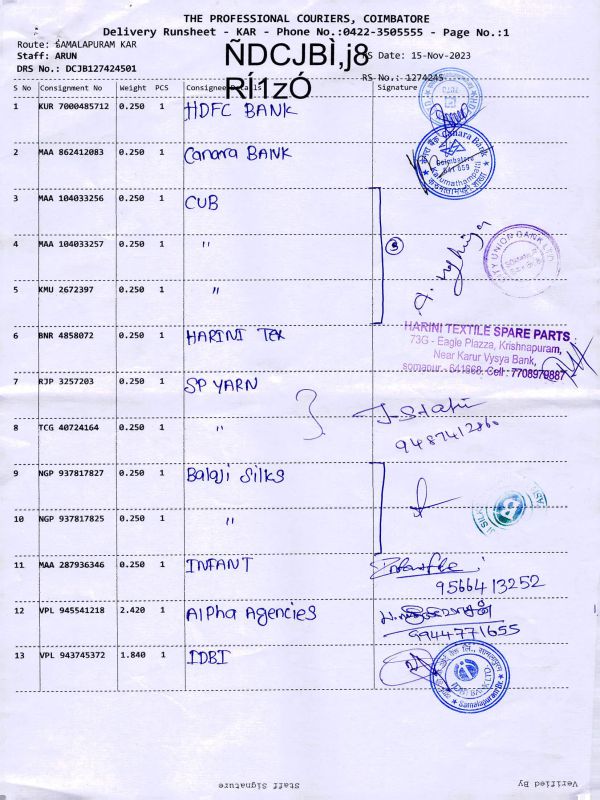 THE PROFESSIONAL COURIERS, COIMBATORE
Delivery Runsheet - KAR - Phone No.:0422-3505555 - Page No.:1
Route: SAMALAPURAM KAR
Staff: ARUN
RS Date: 15-Nov-2023
DRS No.: DCJB127424501
RS No.: 1274245
ÑDCJBÌ,j8
RÍ1zÓ
S No Consignment No Weight PCS Consignee Details Signature
1 KUR 7000485712 0.250 1 HDFC BANK
2 MAA 862412083 0.250 1 Canara BANK
Canara Bank
Coimbatore
641 659
Karumathampatti
3 MAA 104033256 0.250 1 CUB
4 MAA 104033257 0.250 1 "
3
CITY UNION BANK LTD
5 KMU 2672397 0.250 1 "
6 BNR 4858072 0.250 1 HARINI TEX
HARINI TEXTILE SPARE PARTS
73G - Eagle Plazza, Krishnapuram,
Near Karur Vysya Bank,
somanur - 641668. Cell : 7708979887
7 RJP 3257203 0.250 1 SP YARN
8 TCG 40724164 0.250 1 "
9487412860
9 NGP 937817827 0.250 1 Balaji Silks
10 NGP 937817825 0.250 1 "
11 MAA 287936346 0.250 1 INFANT
9566413252
12 VPL 945541218 2.420 1 Alpha Agencies
9944771655
13 VPL 943745372 1.840 1 IDBI
IDBI BANK LTD
Samalapuram Br.
Staff Signature
Verified By